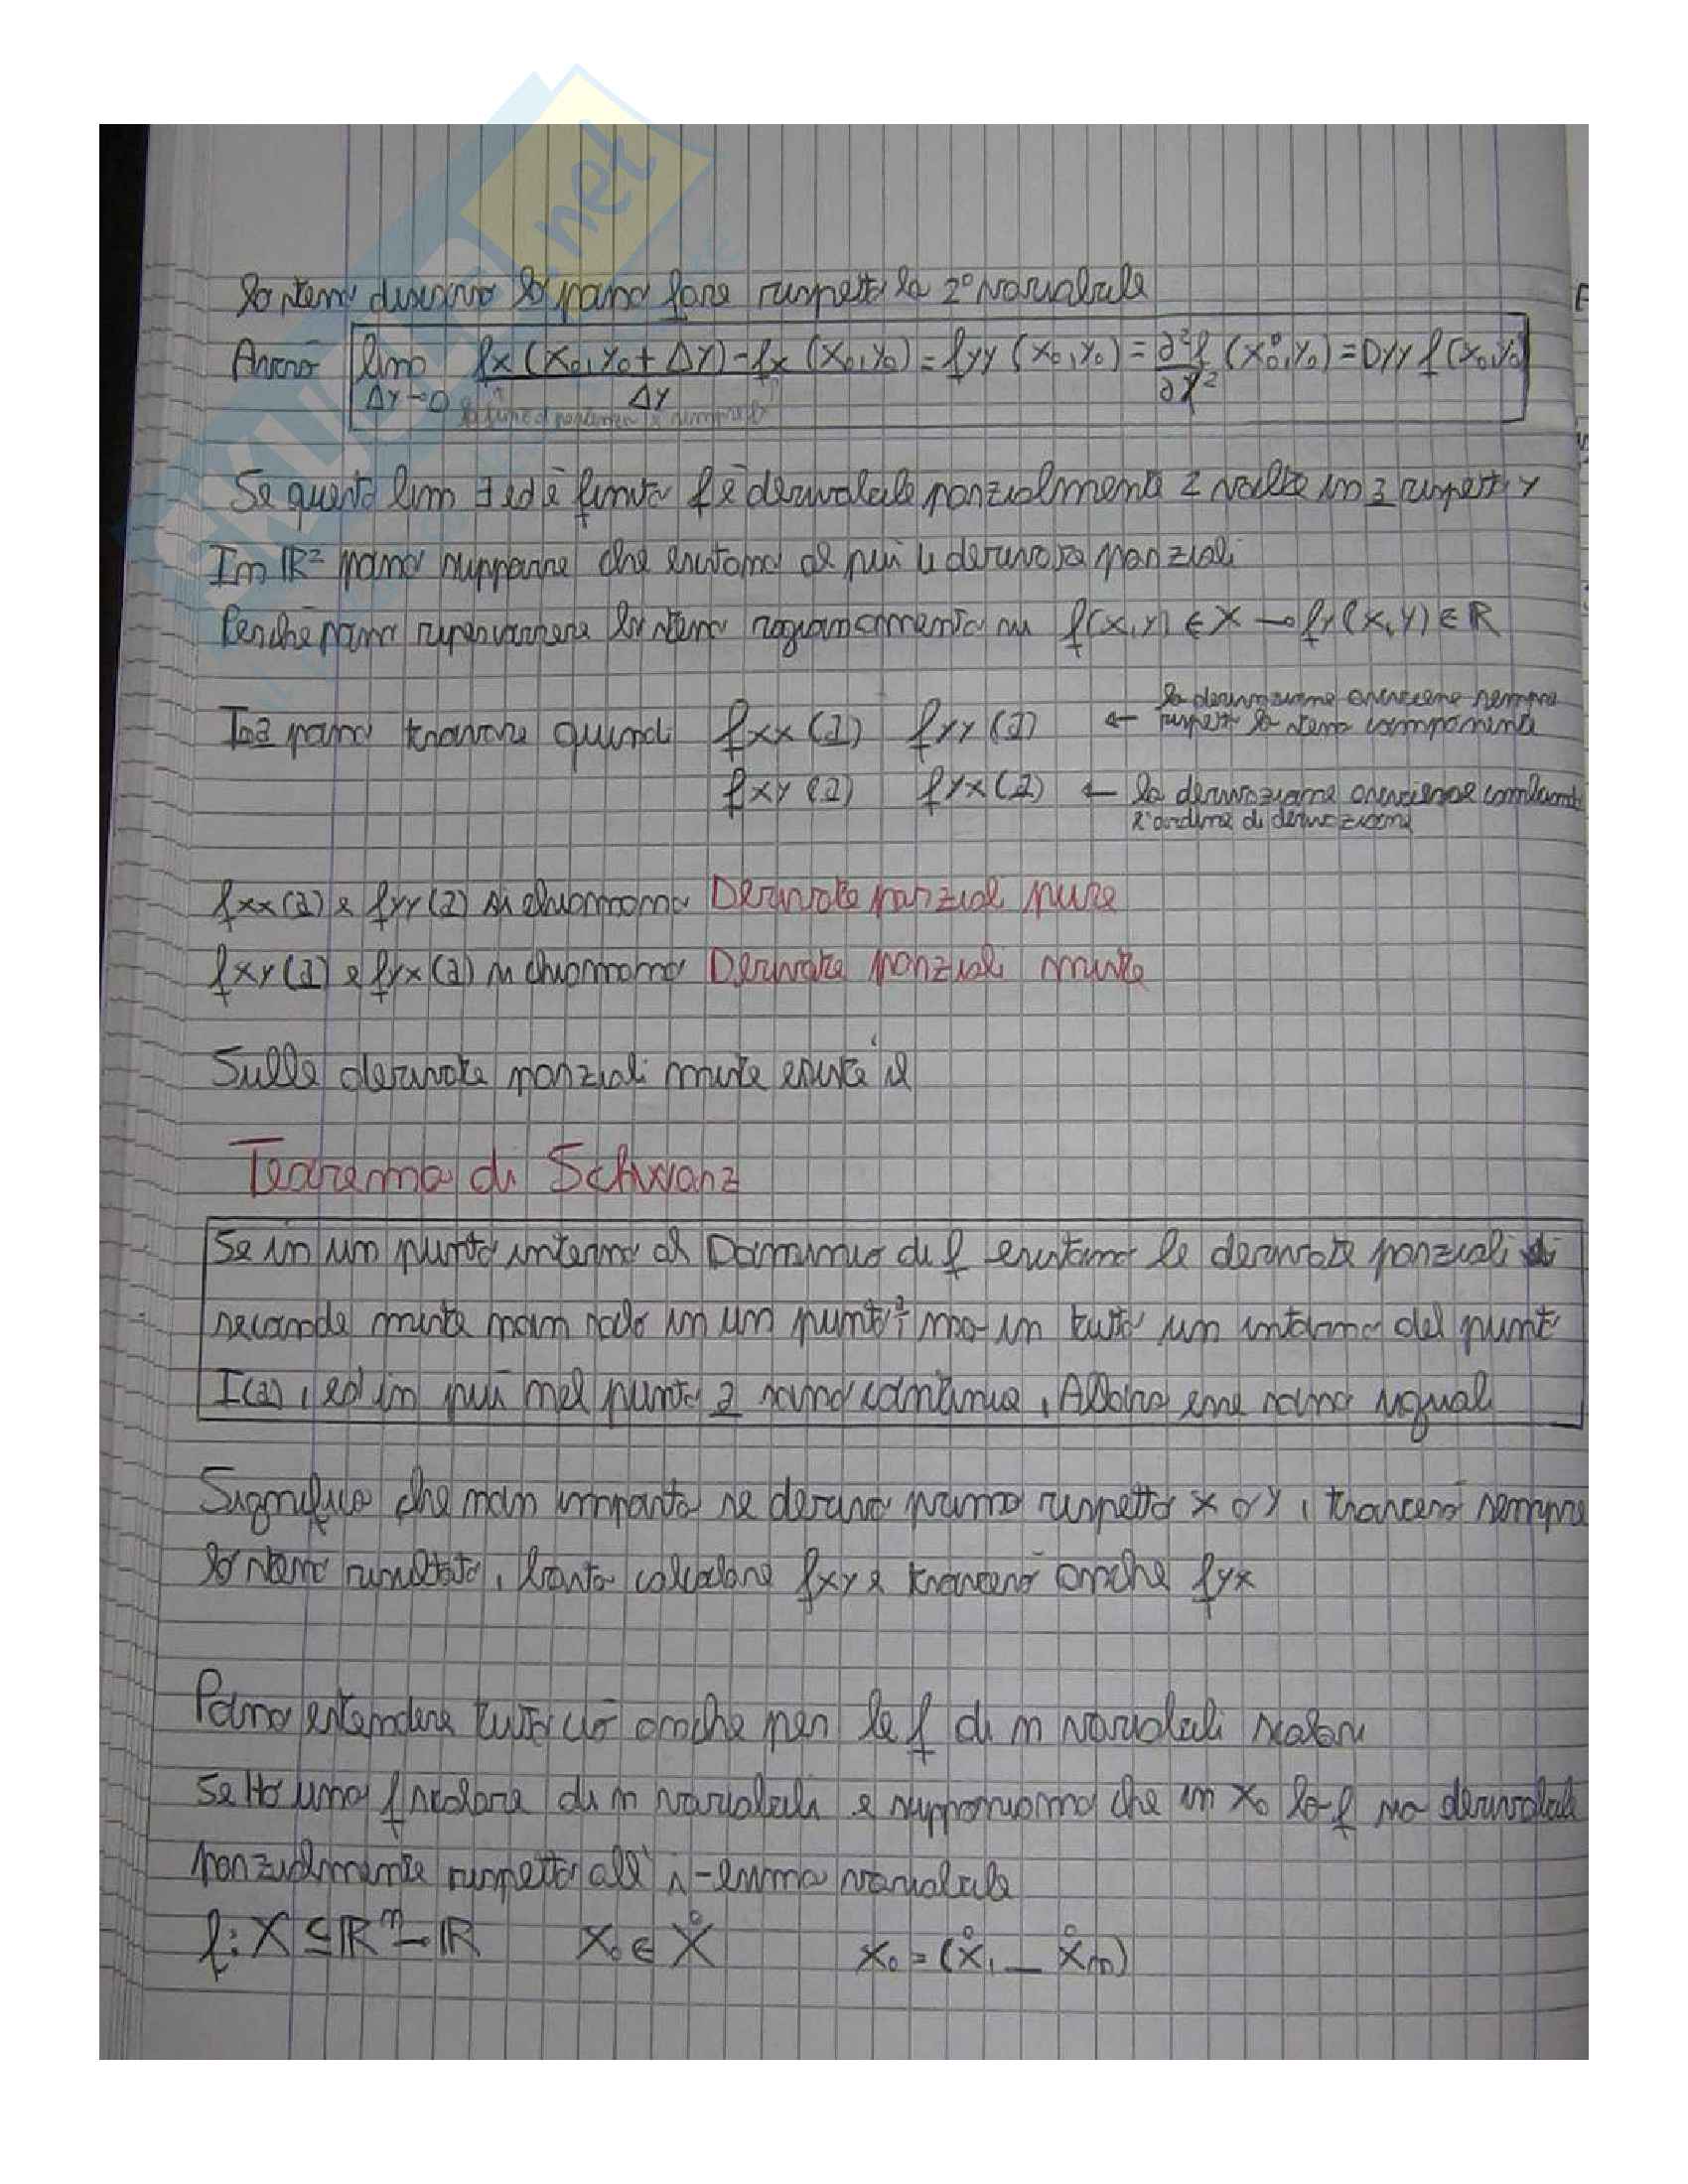 SKUOLA.net
lo stesso discorso lo posso fare rispetto la 2° variabile
Avrò lim fx (x₀,y₀+Δy)-fx (x₀,y₀) = fyy (x₀,y₀) = ∂²f (x₀,y₀) = Dyy f(x₀,y₀)
Δy→0 Δy ∂y²
Se questo lim ∃ ed è finito f è derivabile parzialmente 2 volte in a rispetto y
In ℝ² posso supporre che esistono al più 4 derivate parziali
Perché posso riosservare lo stesso ragionamento su f(x,y) ∈ X → fy(x,y) ∈ ℝ
In a posso trovare quindi fxx(a) fyy(a) ← la derivazione avviene sempre
rispetto la stessa componente
fxy(a) fyx(a) ← la derivazione avviene cambiando
l'ordine di derivazione
fxx(a) e fyy(a) si chiamano Derivate parziali pure
fxy(a) e fyx(a) si chiamano Derivate parziali miste
Sulle derivate parziali miste esiste il
Teorema di Schwarz
Se in un punto interno al Dominio di f esistono le derivate parziali
seconde miste non solo in un punto, ma in tutto un intorno del punto
I(a), ed in più nel punto a sono continue, Allora esse sono uguali
Significa che non importa se derivo prima rispetto x o y, troverò sempre
lo stesso risultato, basta calcolare fxy e troverò anche fyx
Posso estendere tutto ciò anche per le f di n variabili scalari
Se Ho una f scalare di n variabili e supponiamo che in x₀ la f sia derivabile
parzialmente rispetto all' i-esima variabile
f: X ⊆ ℝⁿ → ℝ x₀ ∈ X̊ x₀ = (x̊₁ _ x̊n)